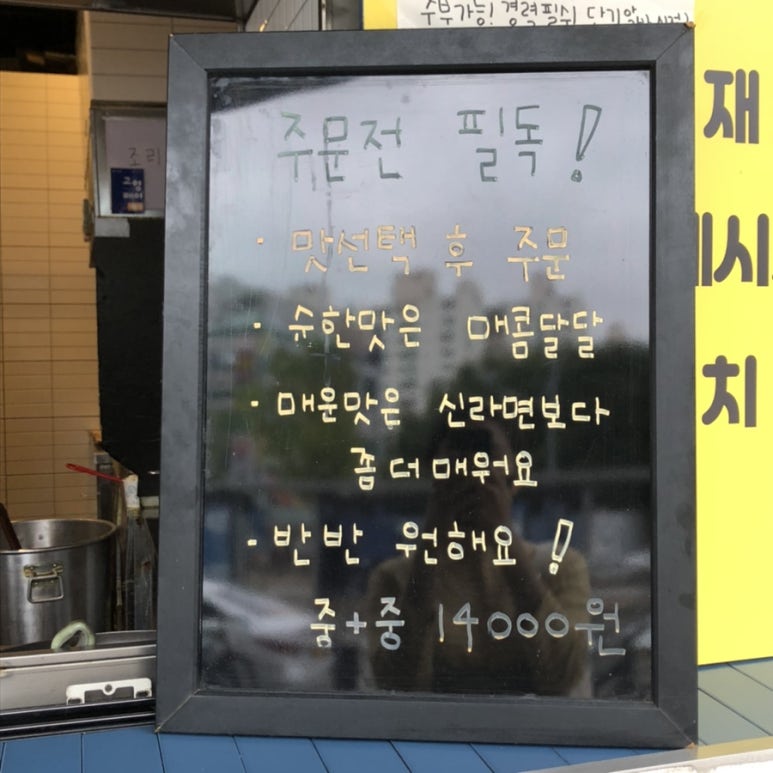 주부가능! 경력필쉬 단기알
조리
고향
주문전 필독!
· 맛선택 후 주문
· 슈한맛은 매콤달달
· 매운맛은 신라면보다
좀더매워요
· 반반 원해요!
중+중 14000원
재
치